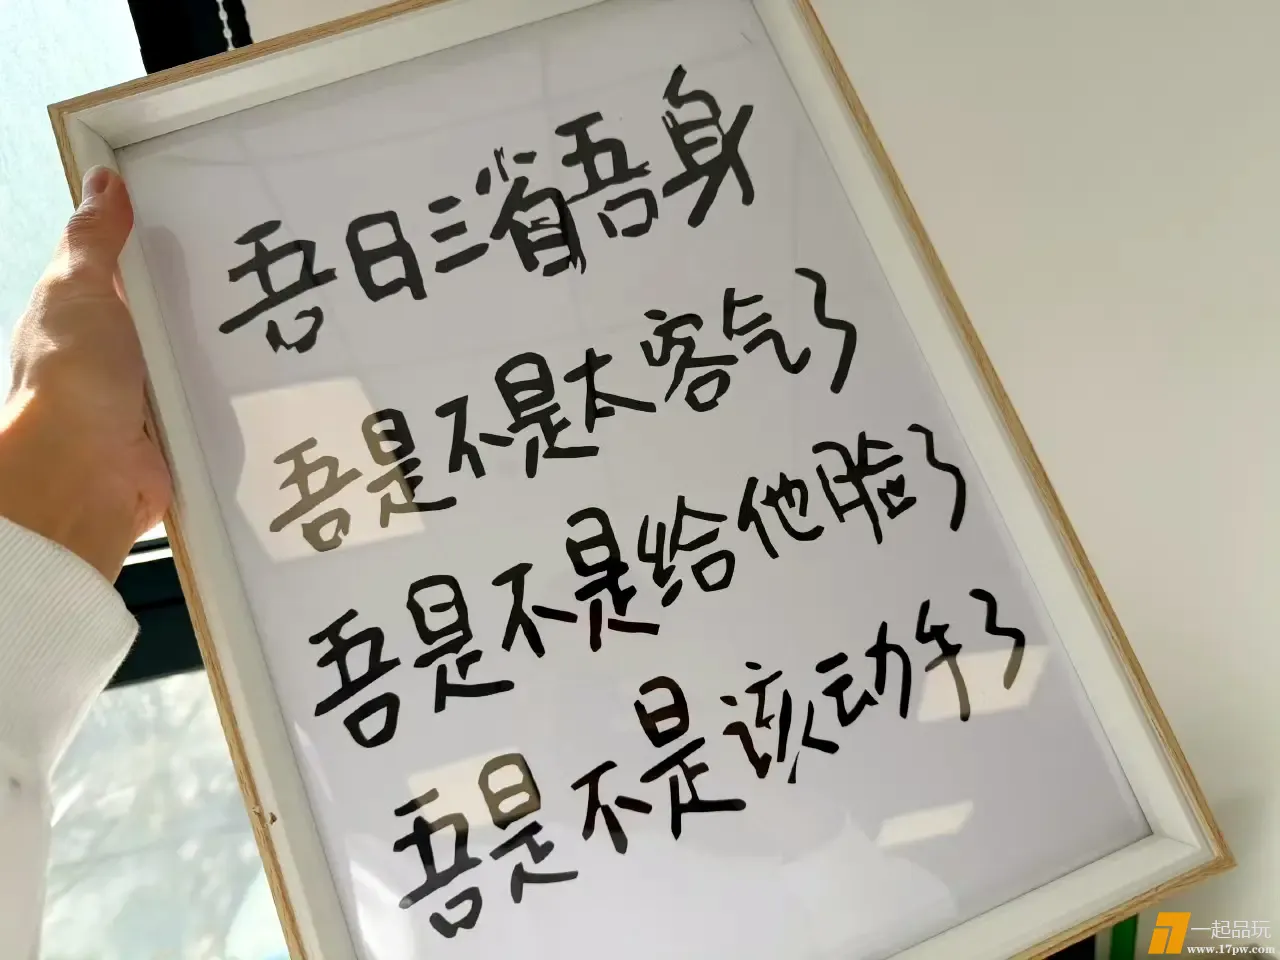 吾日三省吾身
吾是不是太客气了
吾是不是给他脸了
吾是不是该动手了
一起品玩
www.17pw.com